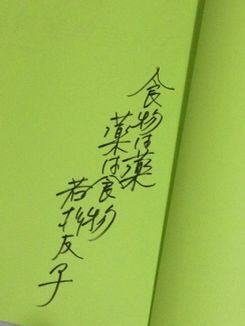 食物は薬
薬は食物
若杉友子